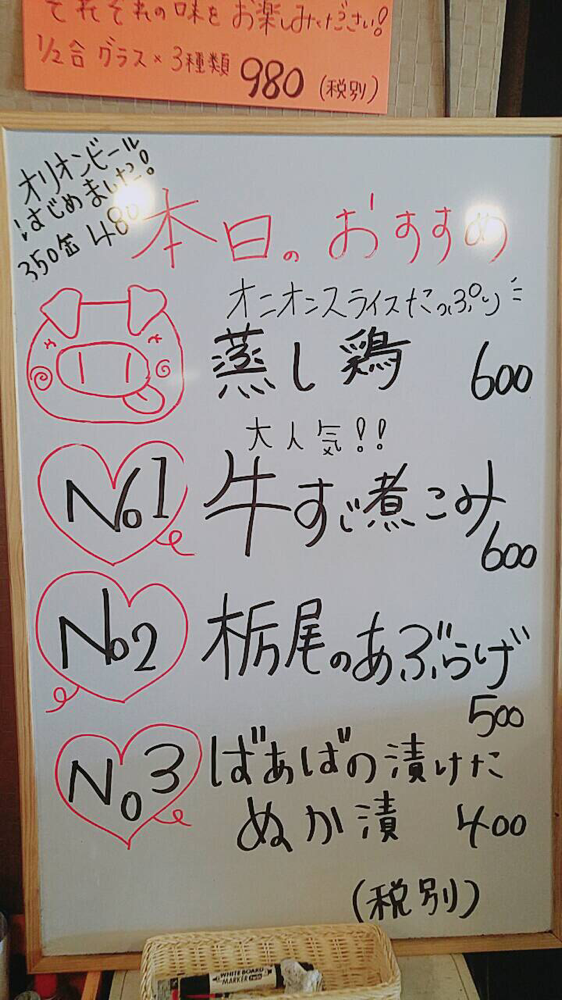 それぞれの味をお楽しみください!
1/2合 グラス×3種類 980 (税別)
オリオンビール
はじめました!
350缶 480
本日のおすすめ
オニオンスライスたっぷり
蒸し鶏 600
大人気!!
No1 牛すじ煮こみ
600
No2 栃尾のあぶらげ
500
No3 ばあばの漬けた
ぬか漬 400
(税別)
WHITE BOARD
MARKER